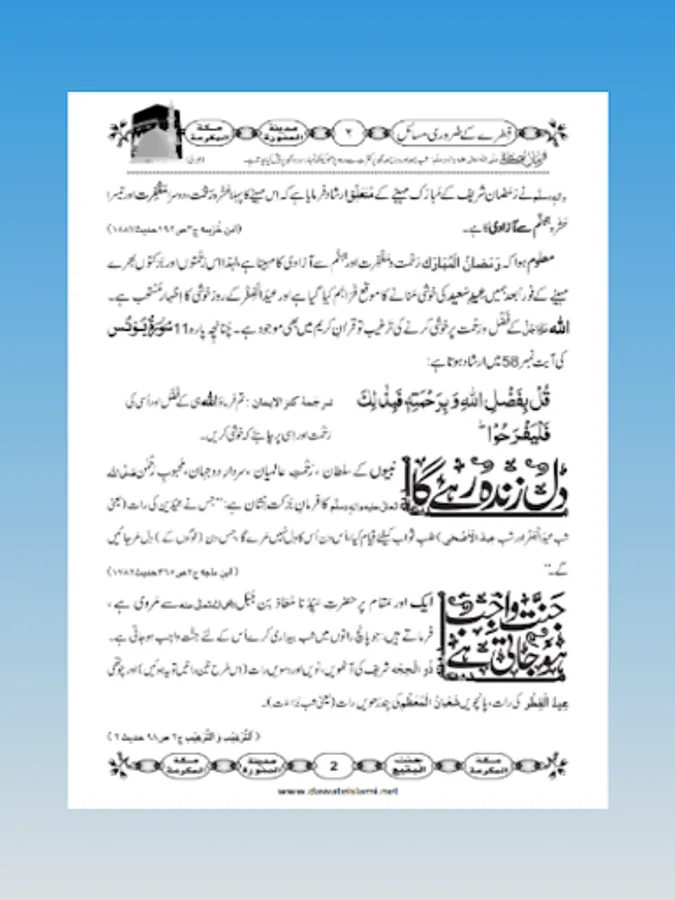 فطرے کے ضروری مسائل ۲ مدینۃ المنورۃ مکۃ المکرمۃ
فرمانِ مصطفےٰ
نے رَمَضان شریف کے مُبارَک مہینے کے مُتَعَلِّق ارشاد فرمایا ہے کہ اس مہینے کا پہلا عَشرہ رَحْمت، دوسرا مغْفِرت اور تیسرا
عَشرہ جہنَّم سے آزادی کا ہے۔ (ابنِ خُزیمہ ج۳ص۱۹۲حدیث۱۸۸۷)
معلوم ہوا کہ رَمَضانُ الْمُبارَك رَحْمت و مغْفِرت اور جہنَّم سے آزادی کا مہینا ہے، لہٰذا اس رَحْمتوں اور بَرَکتوں بھرے
مہینے کے فوراً بعد ہمیں عیدِ سعید کی خوشی منانے کا موقع فَراہم کیا گیا ہے اور عیدُ الْفِطْر کے روز خوشی کا اظہار مُسْتَحب ہے۔
اللہ کے فَضْل و رَحْمت پر خوشی کرنے کی ترغیب تو قرآنِ کریم میں بھی موجود ہے۔ چُنانچِہ پارہ 11 سُوْرَۃُ یُوْنُس
کی آیت نمبر 58 میں ارشاد ہوتا ہے:
قُلْ بِفَضْلِ اللّٰهِ وَ بِرَحْمَتِهٖ فَبِذٰلِكَ ترجمۂ کنز الایمان: تم فرماؤ اللہ ہی کے فَضْل اور اُسی کی
فَلْیَفْرَحُوْاؕ رَحْمت اور اسی پر چاہئے کہ خوشی کریں۔
دل زندہ رہے گا نبیوں کے سلطان ، رَحْمتِ عالمیان، سردارِ دو جہان، محبوبِ رَحْمٰن صلی اللہ
تعالیٰ علیہ واٰلہٖ وسلم کا فرمانِ بَرَکت نشان ہے: ’’جس نے عیدَین کی رات (یعنی
شبِ عیدُ الْفِطْر اور شبِ عیدُ الْاَضْحٰی) طلبِ ثواب کیلئے قِیام کیا، اُس دن اُس کا دل نہیں مَرے گا، جس دن (لوگوں کے) دل مَر جائیں
گے۔‘‘ (ابنِ ماجہ ج۲ص۳۶۵حدیث۱۷۸۲)
جنت واجب ہو جاتی ہے ایک اور مَقام پر حضرتِ سَیِّدُنا مُعاذ بِن جَبَل سے مَروی ہے ،
فرماتے ہیں: جو پانچ راتوں میں شب بیداری کرے اُس کے لئے جنَّت واجِب ہو جاتی ہے۔
ذُو الْحِجّہ شریف کی آٹھویں، نویں اور دسویں رات (اس طرح تین راتیں تو یہ ہوئیں) اور چوتھی
عِیدُ الْفِطْر کی رات، پانچویں شَعْبانُ الْمُعَظَّم کی پندرھویں رات (یعنی شبِ بَراءَت)۔
(اَلتَّرْغِیْب وَ التَّرْهِیْب ج۲ ص۹۸ حدیث۲)
مکۃ المکرمۃ جنت البقیع 2 مدینۃ المنورۃ مکۃ المکرمۃ
www.dawateislami.net